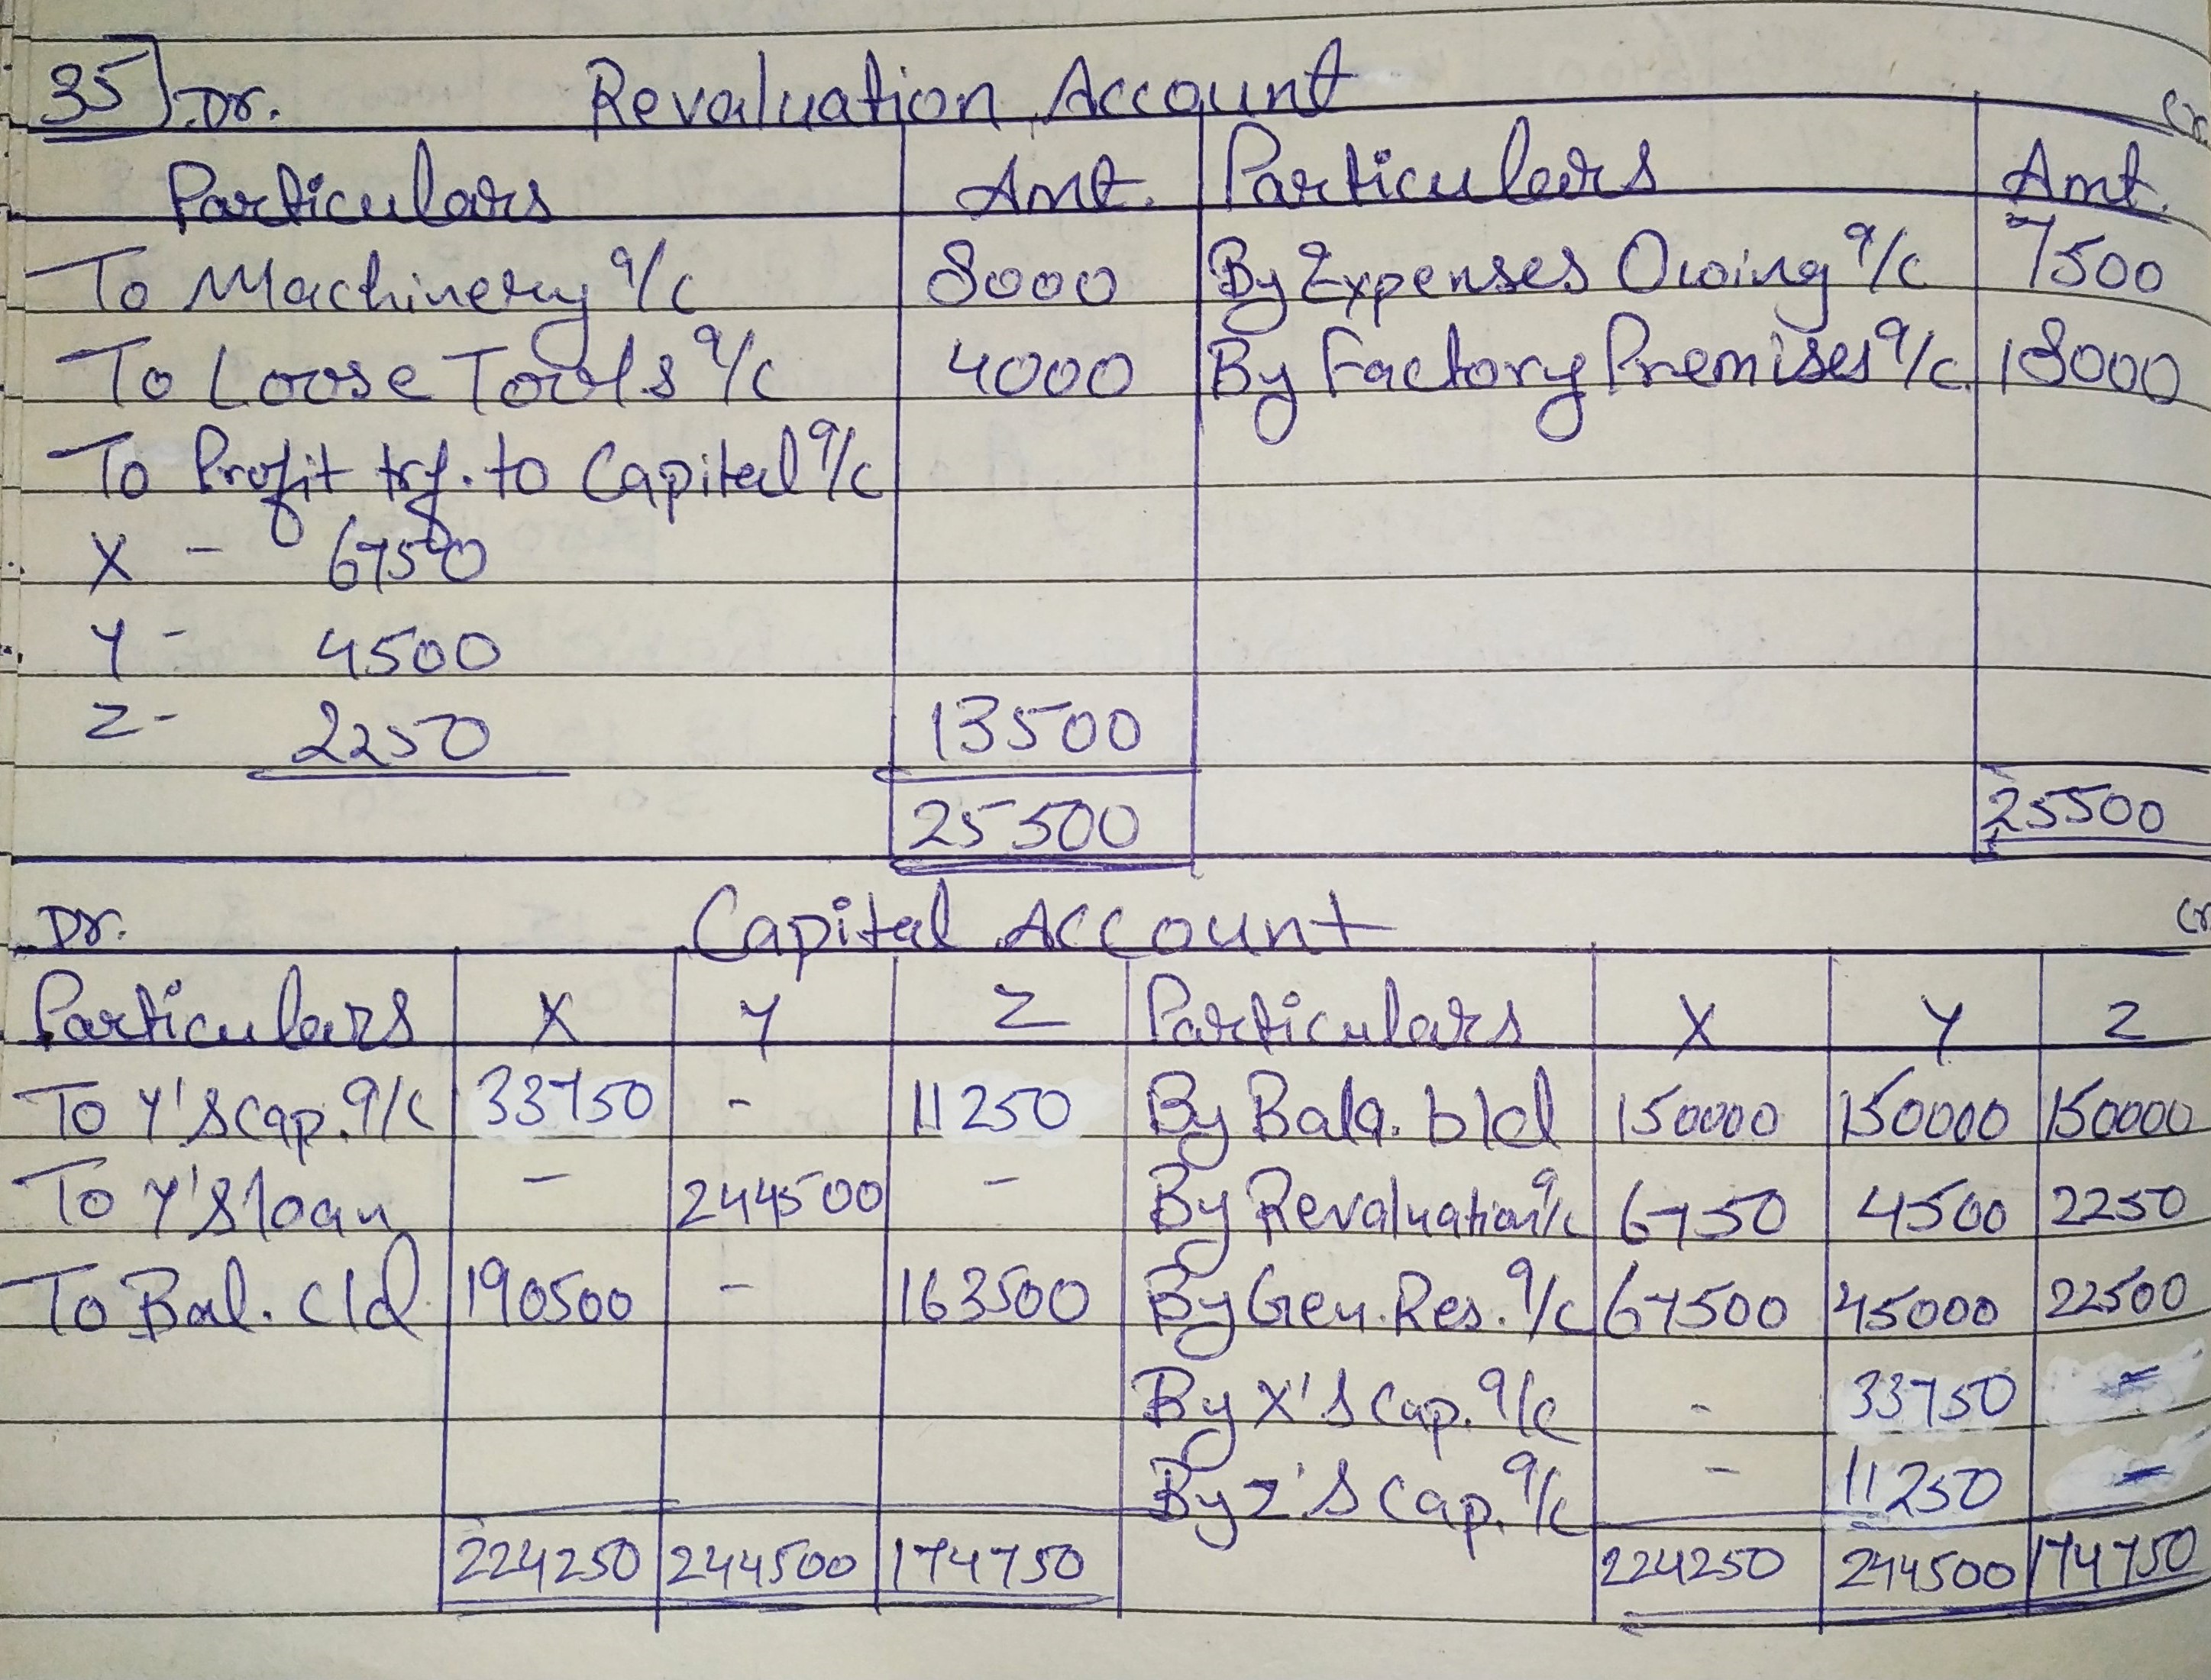 35] Dr. Revaluation Account Cr.
Particulars Amt. Particulars Amt.
To Machinery a/c 8000 By Expenses Owing a/c 7500
To Loose Tools a/c 4000 By Factory Premises a/c 18000
To Profit trf. to Capital a/c
X - 6750
Y - 4500
Z - 2250 13500
25500 25500
Dr. Capital Account Cr
Particulars X Y Z Particulars X Y Z
To Y's Cap. a/c 33750 - 11250 By Bala. b/d 150000 150000 150000
To Y's loan - 244500 - By Revaluation a/c 6750 4500 2250
To Bal. c/d 190500 - 163500 By Gen. Res. a/c 67500 45000 22500
By X's Cap. a/c - 33750 -
By Z's Cap. a/c - 11250 -
224250 244500 174750 224250 244500 174750